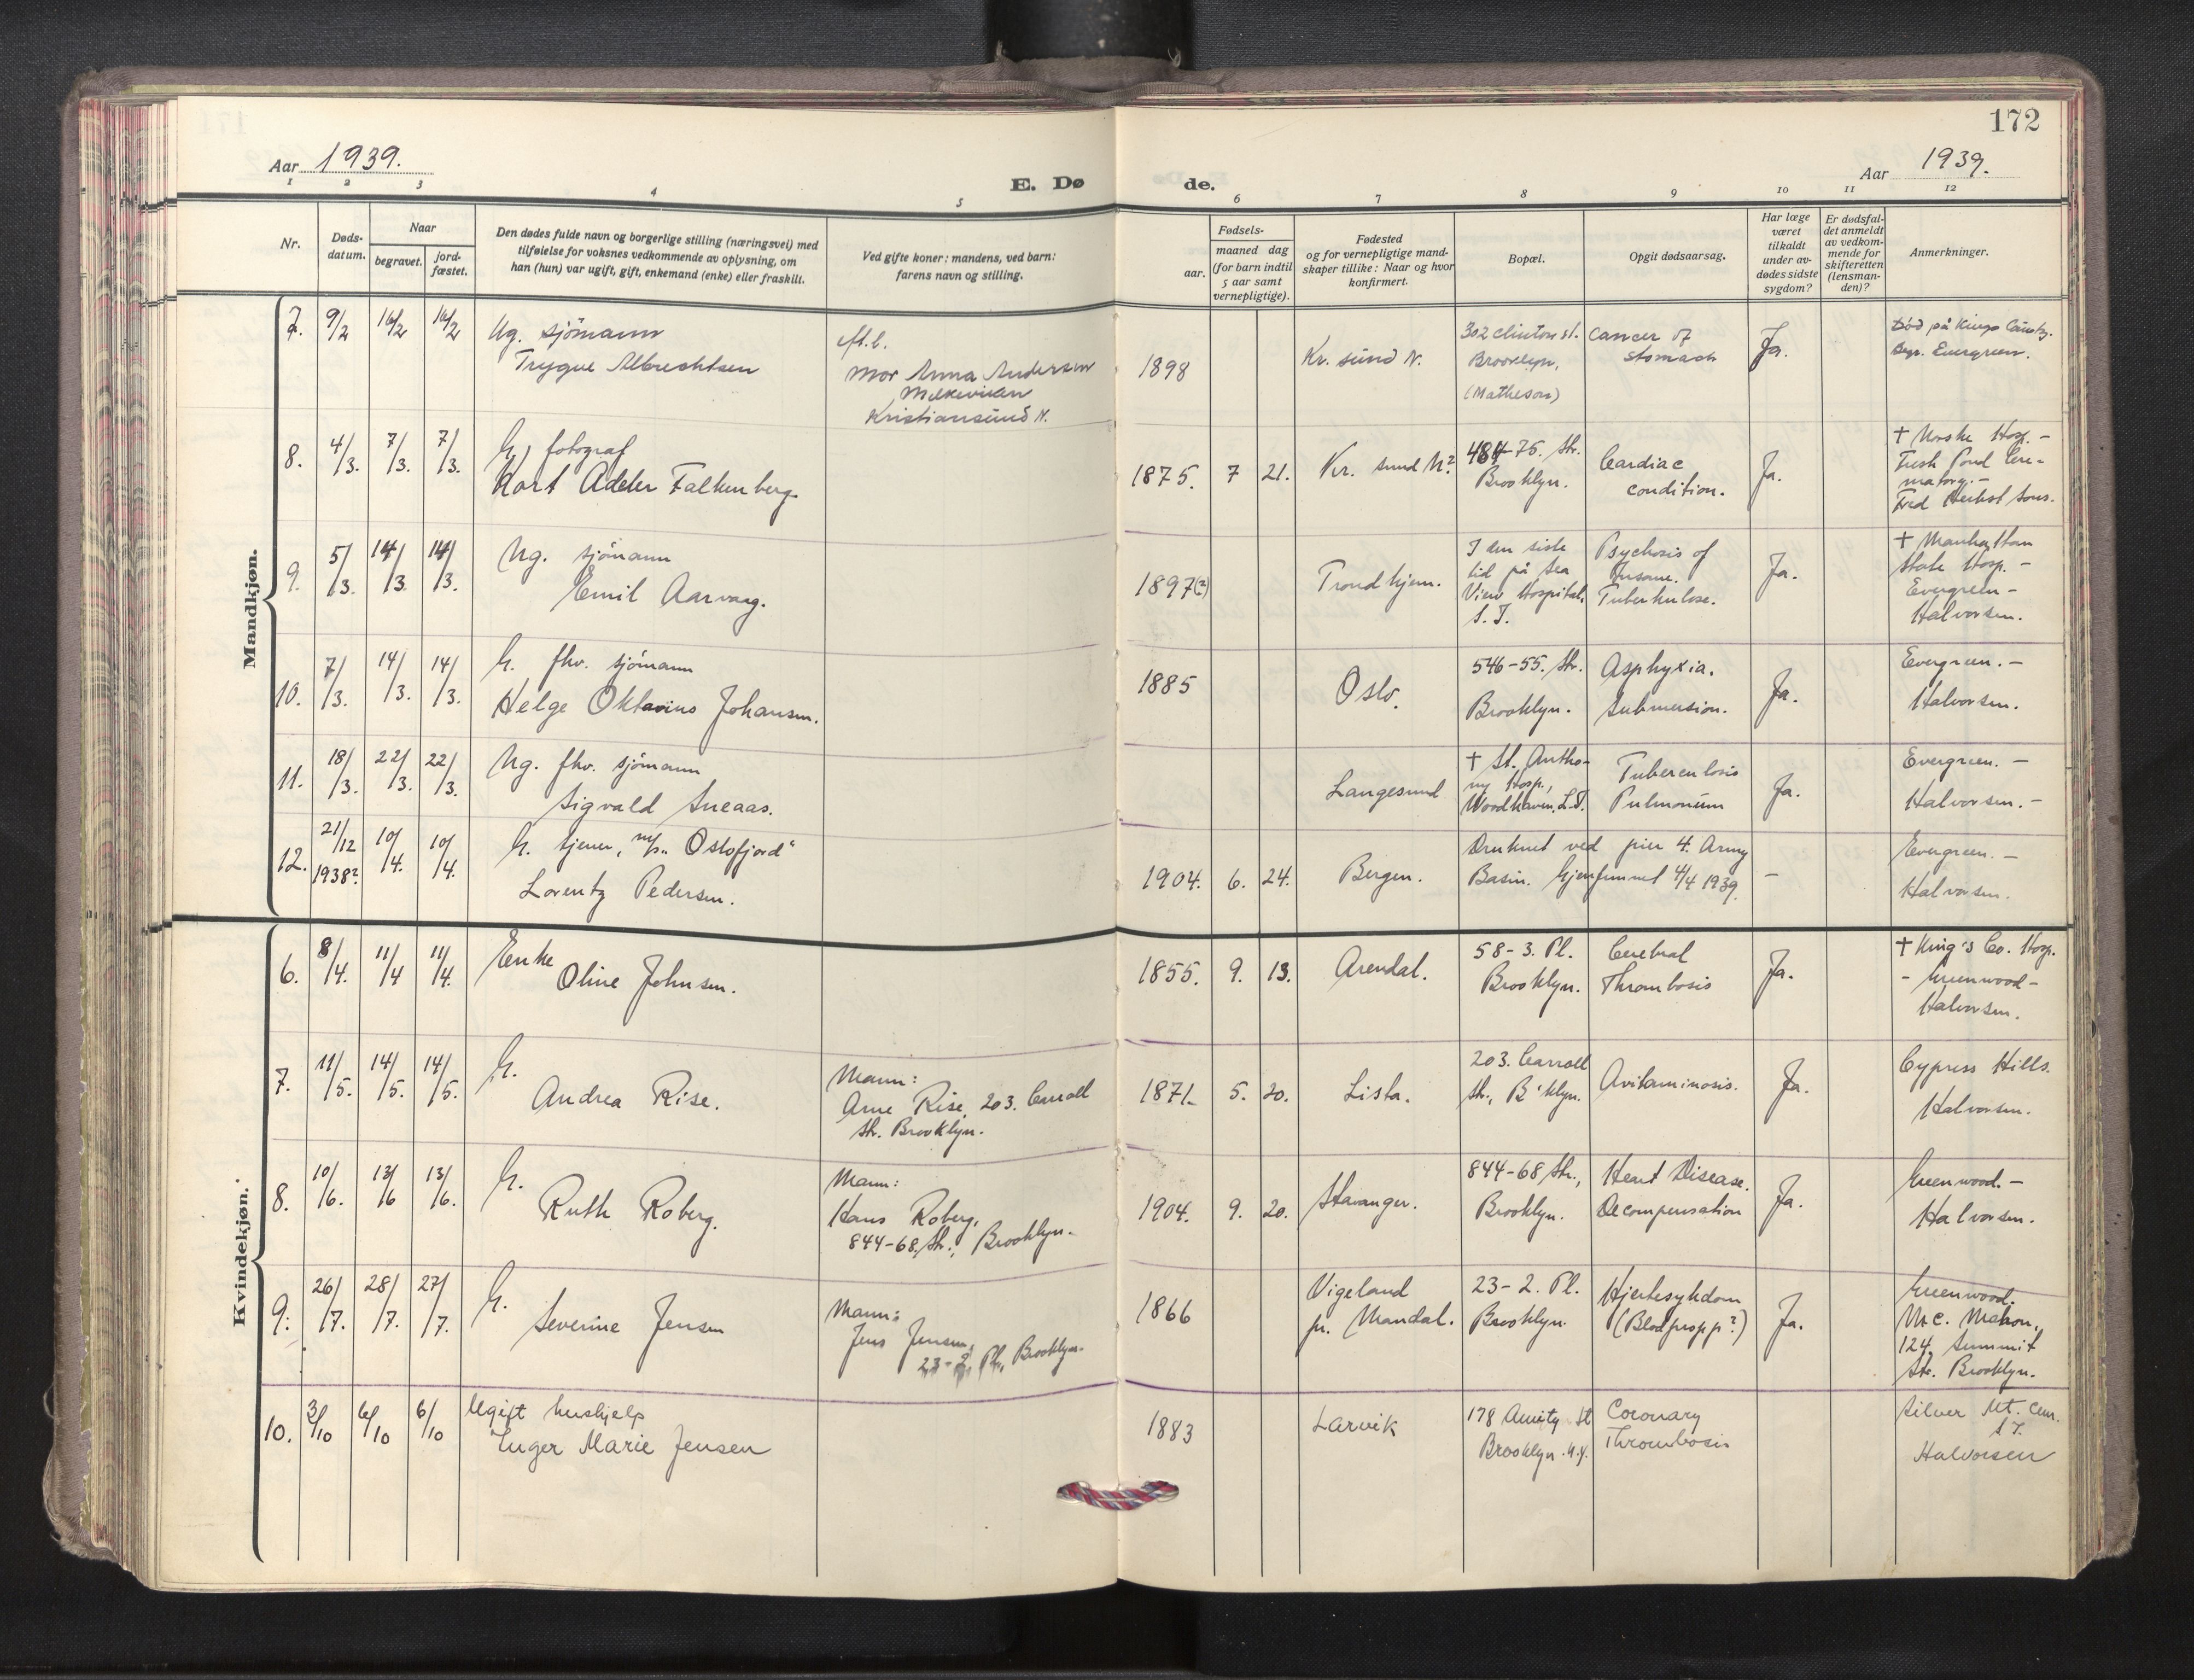 172
Aar 1939.
Aar 1939.
E. Dø
de.
1 2 3 4 5 6 7 8 9 10 11 12
Nr.
Døds-
datum.
Naar
begravet.
jord-
fæstet.
Den dødes fulde navn og borgerlige stilling (næringsvei) med
tilføielse for voksnes vedkommende av oplysning, om
han (hun) var ugift, gift, enkemand (enke) eller fraskilt.
Ved gifte koner: mandens, ved barn:
farens navn og stilling.
Fødsels-
aar.
maaned dag
(for barn indtil
5 aar samt
vernepligtige).
Fødested
og for vernepligtige mand-
skaper tillike: Naar og hvor
konfirmert.
Bopæl.
Opgit dødsaarsag.
Har læge
været
tilkaldt
under av-
dødes sidste
sygdom?
Er dødsfal-
det anmeldt
av vedkom-
mende for
skifteretten
(lensman-
den)?
Anmerkninger.
Mandkjøn.
7. 9/2 16/2 16/2
Ug. sjömann
Trygve Albrechtsen
eft. l.
Mor Anna Andersen
Kristiansund N.
1898
Kr. sund N.
302 Clinton st.
Brooklyn,
(Matheson)
Cancer of
stomach
Ja.
Död på Kings County.
Begr. Evergreen.
8. 4/3. 7/3. 7/3.
G, fotograf
Kort Adeler Falkenberg.
1875. 7 21.
Kr. sund N?
484-75. Str.
Brooklyn.
Cardiac
condition.
Ja.
† Norske Hosp. -
Fresh Pond Cre-
matory. -
Fred Herbst Sons.
9. 5/3. 14/3. 14/3.
Ug. sjömann
Emil Aarvaag.
1897(?)
Trondhjem.
I den siste
tid på Sea
View Hospital,
S. I.
Psychosis of
Insane.
Tuberkulose.
Ja.
† Manhattan
State Hosp. -
Evergreen -
Halvorsen.
10. 7/3. 14/3. 14/3.
G. fhv. sjömann
Helge Oktavius Johansen.
1885
Oslo.
546-55. Str.
Brooklyn.
Asphyxia.
Submersion.
Ja.
Evergreen. -
Halvorsen.
11. 18/3. 22/3. 22/3.
Ug. fhv. sjömann
Sigvald Sneaas.
Langesund
† St. Antho-
ny Hosp.,
Woodhaven, L.I.
Tuberculosis
Pulmonum
Ja.
Evergreen. -
Halvorsen. -
12. 21/12 1938? 10/4. 10/4.
G. tjener, m/s. „Oslofjord"
Lorentz Pedersen.
1904. 6. 24.
Bergen.
Druknet ved pier 4. Army
Basin. Gjenfunnet 4/4 1939.
-
Evergreen. -
Halvorsen.
Kvindekjøn.
6. 8/4. 11/4 11/4.
Enke
Oline Johnsen.
1855. 9. 13.
Arendal.
58-3. Pl.
Brooklyn.
Cerebral
Thrombosis
Ja.
† King's Co. Hosp.
- Greenwood -
Halvorsen.
7. 11/5. 14/5. 14/5.
G.
Andrea Rise.
Mann:
Arne Rise, 203. Carroll
Str. Brooklyn.
1871. 5. 20.
Lista.
203. Carroll
Str., B'klyn.
Avitaminosis.
Ja.
Cypress Hills.
Halvorsen.
8. 10/6. 13/6 13/6.
G.
Ruth Roberg.
Mann:
Hans Roberg,
844-68. Str., Brooklyn.
1904. 9. 20.
Stavanger.
844-68 Str.,
Brooklyn.
Heart Disease.
Decompensation
Ja.
Greenwood. -
Halvorsen.
9. 26/7. 28/7. 27/7.
G.
Severine Jensen
Mann:
Jens Jensen,
23-2. Pl., Brooklyn.
1866
Vigeland
pr. Mandal.
23-2. Pl.
Brooklyn.
Hjertesykdom
(Blodpropp?)
Ja.
Greenwood.
Mc. Mahon,
124 Summit
Str. Brooklyn.
10. 3/10 6/10 6/10
Ugift hushjelp
Inger Marie Jensen
1883
Larvik
178 Amity St
Brooklyn. N.Y.
Coronary
Thrombosis
Silver Mt. Cem.
S.I.
Halvorsen